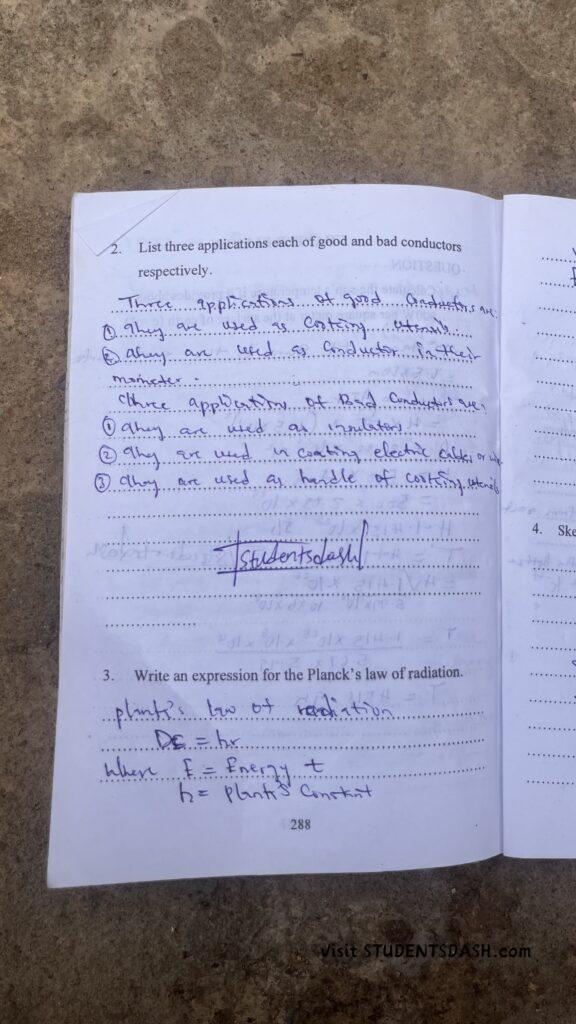 2. List three applications each of good and bad conductors
respectively.
Three applications of good conductors are:
① They are used as cooking utensils
② They are used as conductor in their
mometer.
Three applications of Bad conductors are:
① They are used as insulators
② They are used in coating electric cables or
③ They are used as handle of cooking utensils
studentsdash
3. Write an expression for the Planck's law of radiation.
plank's law of radiation
= hv
where E = Energy
h = plank's constant
288
4. Ske
Visit STUDENTSDASH.com